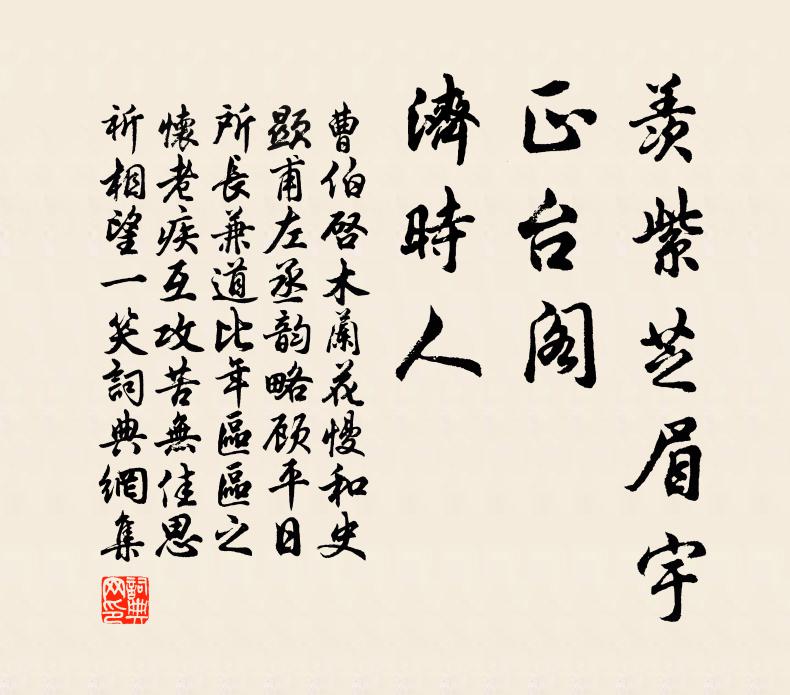 羨紫芝眉宇
正台阁
濟時人
曹伯啓木蘭花慢和史
顕甫左丞韵略顾平日
所長兼道比年區區之
懷老疾互攻苦無佳思
祈相望一笑詞典網集
詞典网印